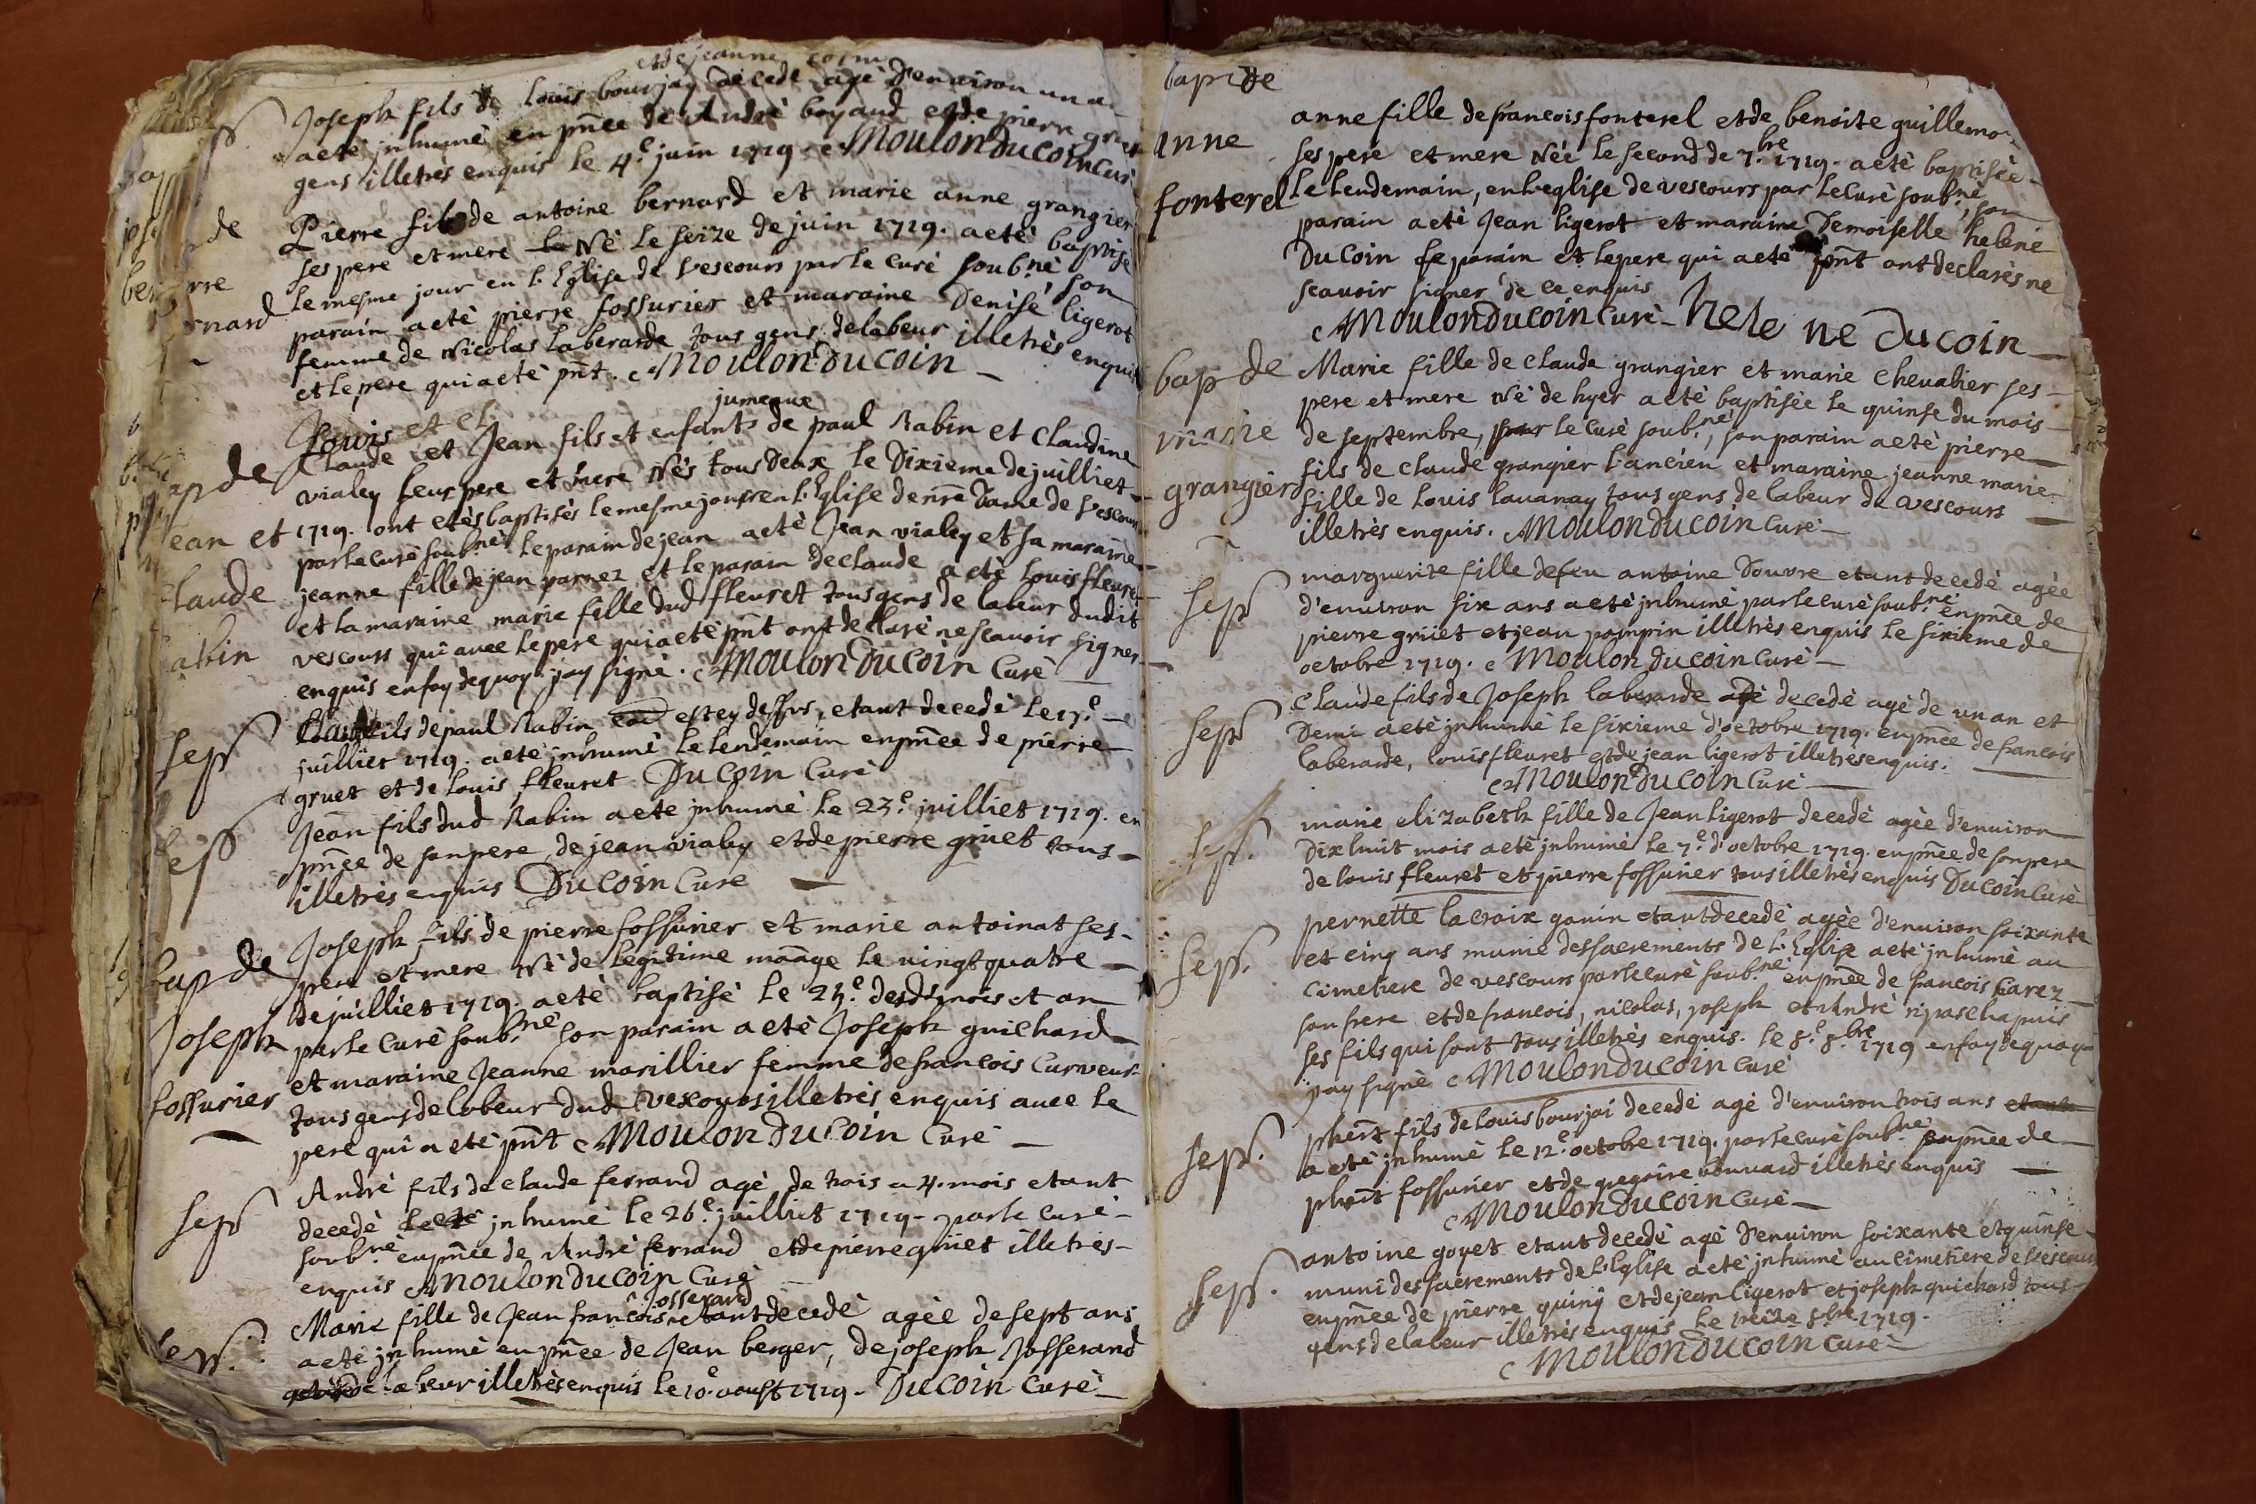 et de jeanne
sep
Joseph fils de Louis bourjay decede agé d'enuiron un
a eté jnhumé en pñce de André boyaud et de pierre gruet
gens illetrés enquis le 4.e juin 1719. Moulon Du Coin Curé
de
rre
rnard
Pierre fils de antoine bernard et marie anne grangier
ses pere et mere Né le seize de juin 1719. a eté baptisé
le mesme jour en l'Eglise de Vescours par le curé soub.né son
parain a eté pierre fossurier et maraine Denise ligerot
femme de Nicolas laberarde tous gens de labeur illetrés enquis
et le pere qui a eté pñt. Moulon Du Coin
ap de
ean et
laude
abin
jumeaue
Claude et Jean fils et enfants de paul Rabin et Claudine
vialey leur pere et mere Nés tous Deux le Dixieme de juilliet
1719. ont etés baptisés le mesme jour en l'Eglise de nr̃e Dame de Vescours
par le curé soub.né le parain de jean a eté Jean vialey et sa maraine
jeanne fille de jean parnez et le parain de claude a eté Louis fleuret
et la maraine marie fille dud fleuret tous gens de labeur dudit
vescours qui auec le pere qui a eté pñt ont declaré ne scauoir signer
enquis en foy de quoy j'ay signé. Moulon Du Coin Curé
sep
fils de paul Rabin cy dessus, etant decedé le 17.e
juilliet 1719. a eté jnhumé le lendemain en pñce de pierre
gruet et de Louis fleuret Du Coin Curé
sep
Jean fils dud Rabin a eté jnhumé le 23.e juilliet 1719. en
pñce de son pere, de jean vialey et de pierre grüet tous
illetrés enquis Du Coin Curé
bap de
Joseph
fossurier
Joseph fils de pierre fossurier et marie antoinat ses
pere et mere Né de legitime maãge le uingt quatre
de juilliet 1719. a eté baptisé le 25.e desd.s mois et an
par le Curé soub.né son parain a eté Joseph guichard
et maraine Jeanne marillier femme de francois Curveur
tous gens de labeur dud Vexcours illetrés enquis auec le
pere qui a eté pñt Moulon Du Coin Curé
sep
André fils de claude ferrand agé de trois a 4. mois etant
decedé jnhumé le 26.e juilliet 1719. par le curé
soub.né en pñce de André ferrand et de pierre grüet illetrés
enquis Moulon Du Coin Curé
sep.
osserand
Marie fille de Jean francois etant decedé agée de sept ans
a eté jnhumé en pñce de Jean berger, de joseph Josserand
labeur illetrés enquis le 10.e aoust 1719. Du Coin Curé
bap de
anne
fonterel
anne fille de francois fonterel et de benoite guillemo
ses pere et mere Née le second de 7.bre 1719. a eté baptisée
le lendemain, en l'eglise de vescours par le curé soub.né, son
parain a eté Jean ligerot et maraine Demoiselle helene
Du Coin le parain et le pere qui a eté pñt ont declarés ne
scauoir signer de ce enquis
Moulon Du Coin Curé helene Du coin
bap de
marie
grangier
Marie fille de claude grangier et marie chevalier ses
pere et mere Né de hyer a eté baptisée le quinse du mois
de septembre, par le curé soub.né, son parain a eté pierre
fils de claude grangier l'ancien et maraine jeanne marie
fille de Louis lauanay tous gens de labeur de vescours
illetrés enquis. Moulon Du Coin Curé
sep
marguerite fille de feu antoine Douvre etant decedé agée
d'enuiron six ans a eté jnhumé par le curé soub.né en pñce de
pierre grüet et jean pompin illetrés enquis le sixieme de
octobre 1719. Moulon Du Coin Curé
sep
Claude fils de Joseph laberarde decedé agé de un an et
Demi a eté jnhumé le sixieme d'octobre 1719. en pñce de francois
laberarde, louis fleuret et de jean ligerot illetrés enquis.
Moulon Du Coin Curé
sep.
marie elizabeth fille de Jean ligerot decedé agée d'enuiron
Dix huit mois a eté jnhumé le 7.e d'octobre 1719. en pñce de son pere
de louis fleuret et pierre fossurier tous illetrés enquis Du Coin Curé
sep.
pernette lacroix gonin etant decedé agée d'enuiron soixante
et cinq ans munie des sacrements de l'Eglise a eté jnhumé au
cimetiere de vescours par le curé soub.né en pñce de francois Carez
son frere et de francois, nicolas, joseph et André chapuis
ses fils qui sont tous illetrés enquis. le 8.e 8.bre 1719 en foy de quoy
j'ay signé Moulon Du Coin Curé
sep.
phert fils de louis bourjoi decedé agé d'enuiron trois ans etant
a eté jnhumé le 12.e octobre 1719. par le curé soub.né en pñce de
phert fossurier et de gregoire bouvard illetrés enquis
Moulon Du Coin Curé
sep.
antoine goyet etant decedé agé d'enuiron soixante et quinse
muni des sacrements de l'Eglise a eté jnhumé au cimetiere de Vescours
en pñce de pierre quiny et de jean ligerot et joseph guichard tous
gens de labeur illetrés enquis le 8.bre 1719.
Moulon Du Coin Curé